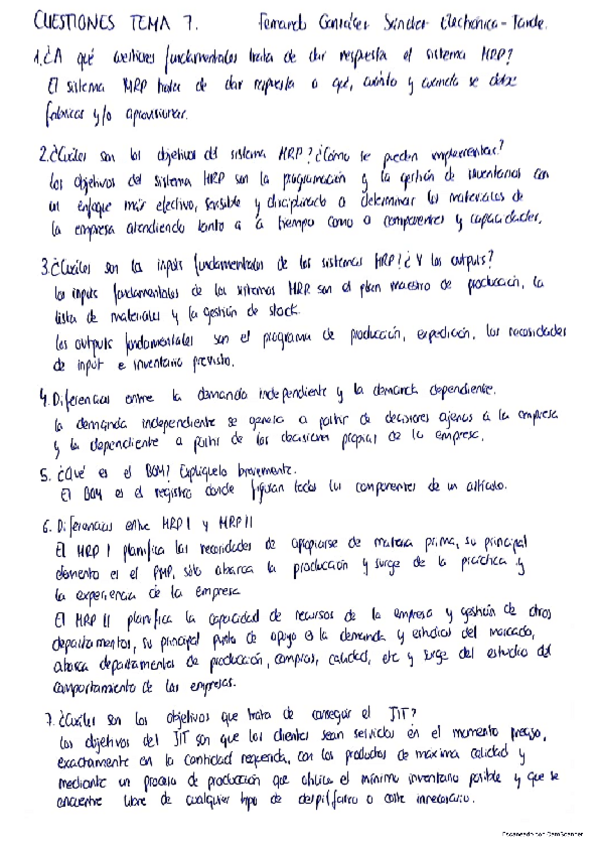 CUESTIONES TEMA 7. Fernando González Sánchez Electrónica-Tarde.
1.¿A qué cuestiones fundamentales trata de dar respuesta el sistema MRP?
El sistema MRP trata de dar respuesta a qué, cuánto y cuando se debe
fabricar y/o aprovisionar.
2.¿Cuáles son los objetivos del sistema MRP? ¿Cómo se pueden implementar?
Los objetivos del sistema MRP son la programación y la gestión de inventarios con
un enfoque más efectivo, sensible y disciplinado a determinar los materiales de
la empresa atendiendo tanto a a tiempo como a componentes y capacidades.
3.¿Cuáles son la inputs fundamentales de los sistemas MRP? ¿Y los outputs?
los inputs fundamentales de los sistemas MRP son el plan maestro de producción, la
lista de materiales y la gestión de stock.
Los outputs fundamentales son el programa de producción, expedición, las necesidades
de input e inventario previsto.
4. Diferencias entre la demanda independiente y la demanda dependiente.
la demanda independiente se genera a partir de decisiones ajenas a la empresa
y la dependiente a partir de las decisiones propias de la empresa.
5. ¿Qué es el BOM? Explíquelo brevemente.
El BOM es el registro donde figuran todos los componentes de un artículo.
6. Diferencias entre MRP I y MRP II
El MRP I planifica las necesidades de apropiarse de materia prima, su principal
elemento es el PMP, sólo abarca la producción y surge de la práctica y
la experiencia de la empresa
El MRP II planifica la capacidad de recursos de la empresa y gestión de otros
departamentos, su principal punto de apoyo es la demanda y estudios del mercado,
abarca departamentos de producción, compras, calidad, etc y surge del estudio del
comportamiento de las empresas.
7. ¿Cuáles son los objetivos que trata de conseguir el JIT?
Los objetivos del JIT son que los clientes sean servidos en el momento preciso,
exactamente en la cantidad requerida, con los productos de máxima calidad y
mediante un proceso de producción que utilice el mínimo inventario posible y que se
encuentre libre de cualquier tipo de despilfarro o coste innecesario.
Escaneado con CamScanner